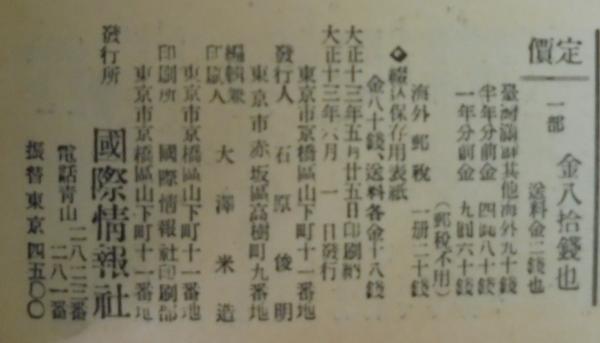 定價
一部 金八拾錢也
送料金二錢也
臺灣滿鮮其他海外九十錢
半年分前金 四圓八十錢
一年分前金 九圓六十錢
(郵税不用)
海外郵税 一册二十錢
◆綴込保存用表紙
金八十錢、送料各金十八錢
大正十三年五月廿五日印刷納
大正十三年六月一日發行
東京市京橋區山下町十一番地
發行人 石原俊明
東京市赤坂區高樹町九番地
編輯兼
印刷人 大澤米造
東京市京橋區山下町十一番地
印刷所 國際情報社印刷部
東京市京橋區山下町十一番地
發行所 國際情報社
電話青山 二八二三番
二八一番
振替東京四五〇〇